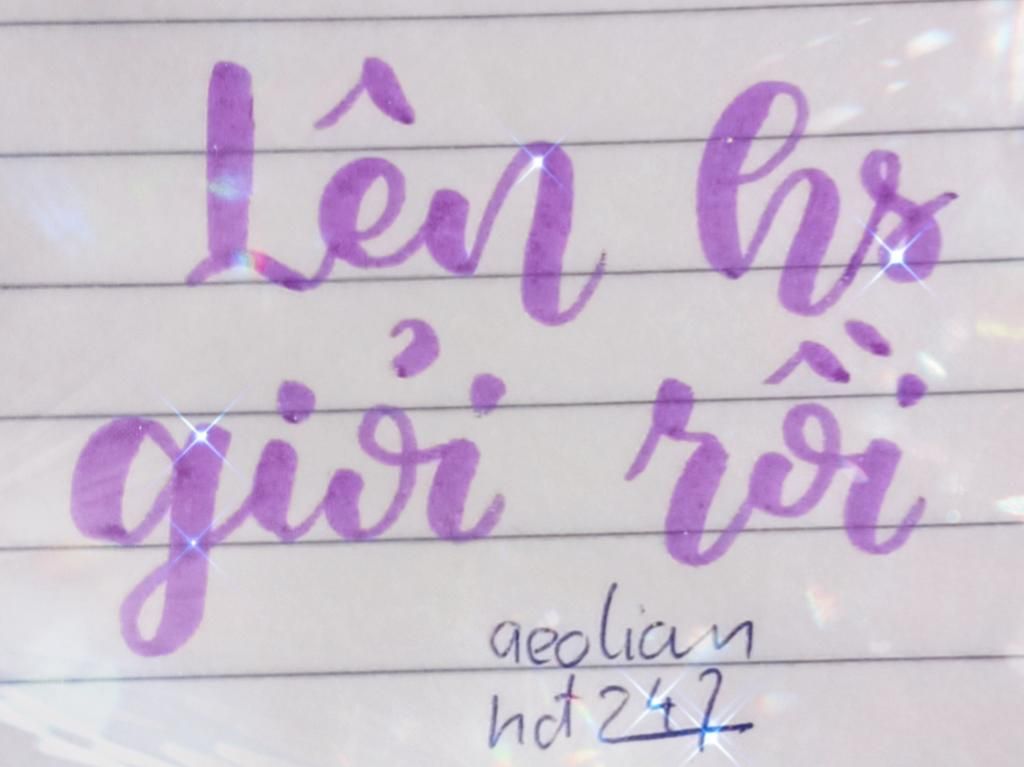 Lên hs
giỏi rồi
aeolian
hđ 247